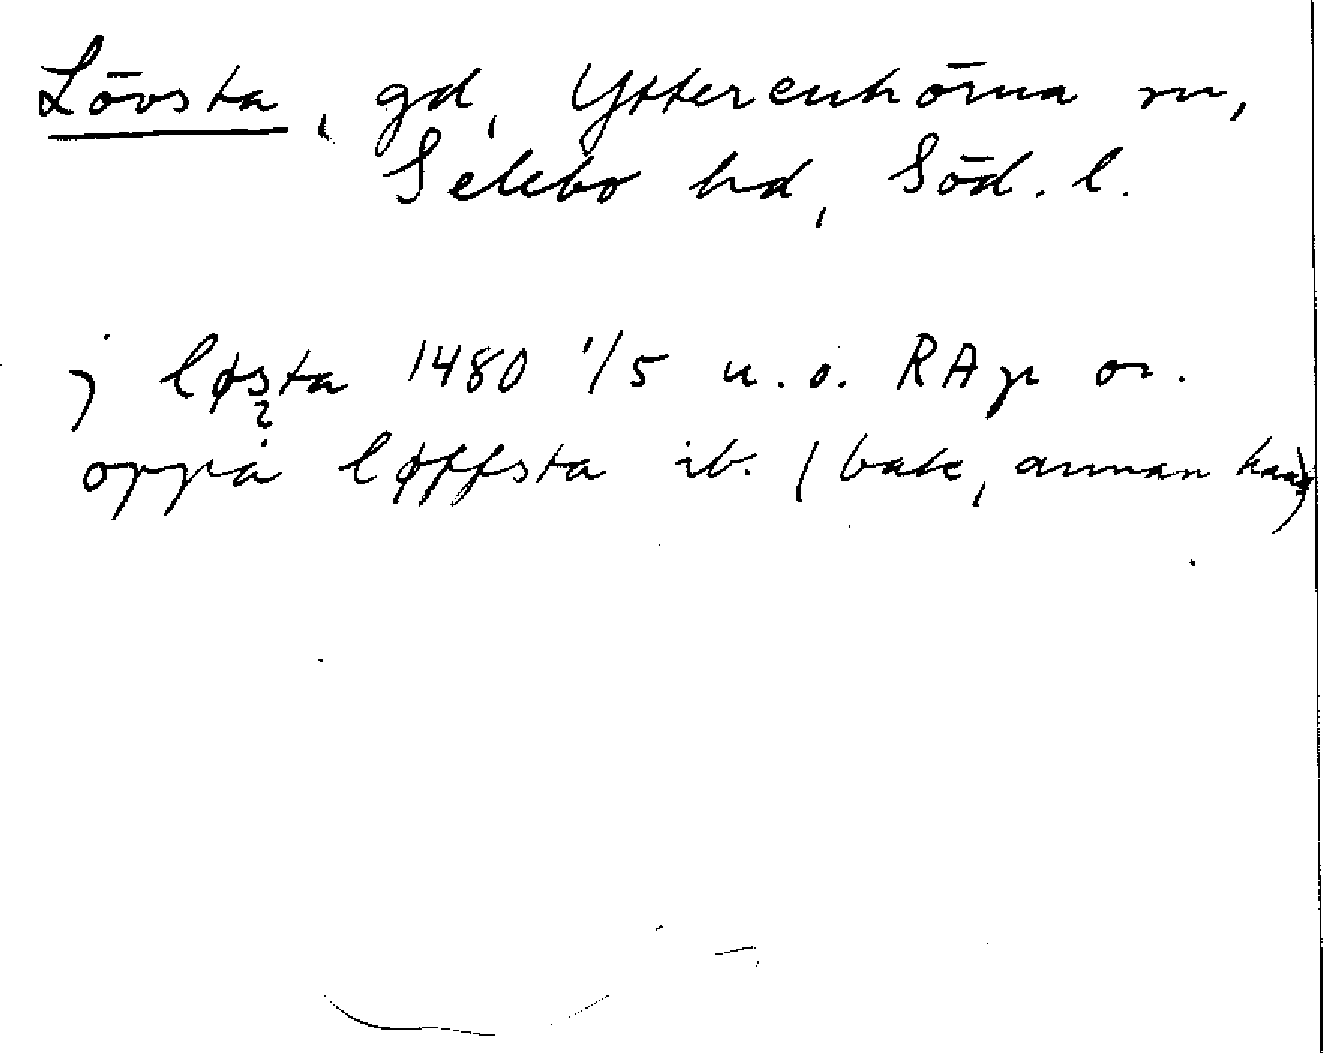 Lövsta, gd, Ytterenhörna sn,
Selebo hd, Söd. l.
j løsta 1480 1/5 u.o. RAp or.
?
oppa løffsta ib. (bake, annan hand)